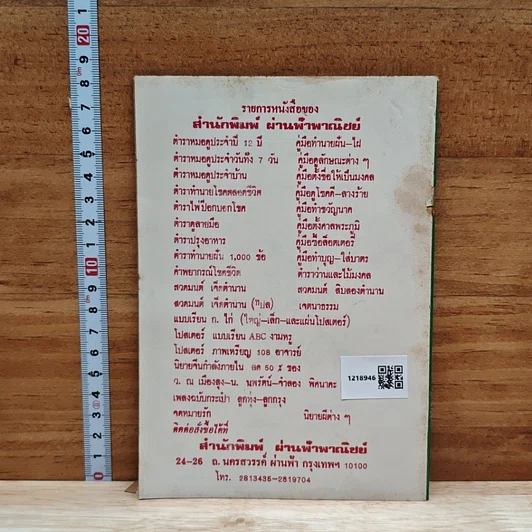 รายการหนังสือของ
สำนักพิมพ์ ผ่านฟ้าพาณิชย์
ตำราหมอดูประจำปี 12 ปี คู่มือทำนายฝัน-ไฝ
ตำราหมอดูประจำวันทั้ง 7 วัน คู่มือดูลักษณะต่าง ๆ
ตำราหมอดูประจำบ้าน คู่มือตั้งชื่อให้เป็นมงคล
ตำราทำนายโชคตลอดชีวิต คู่มือดูโชคดี-ลางร้าย
ตำราไพ่ป๊อกบอกโชค คู่มือทำขวัญนาค
ตำราดูลายมือ คู่มือตั้งศาลพระภูมิ
ตำราปรุงอาหาร คู่มือซื้อล็อตเตอรี่
ตำราทำนายฝัน 1,000 ข้อ คู่มือทำบุญ-ใส่บาตร
คำพยากรณ์โชคชีวิต ตำราว่านและไม้มงคล
สวดมนต์ เจ็ดตำนาน สวดมนต์ สิบสองตำนาน
สวดมนต์ เจ็ดตำนาน (แปล) เจตนาธรรม
แบบเรียน ก. ไก่ (ใหญ่-เล็ก-และแผ่นโปสเตอร์)
โปสเตอร์ แบบเรียน ABC งามหรู
โปสเตอร์ ภาพเหรียญ 108 อาจารย์
นิยายจีนกำลังภายใน ลด 50 % ของ
ว. ณ เมืองลุง-น. นพรัตน์-จำลอง พิศนาคะ
เพลงฉบับกระเป๋า ลูกทุ่ง-ลูกกรุง
จดหมายรัก นิยายผีต่าง ๆ
ติดต่อสั่งซื้อได้ที่
สำนักพิมพ์ ผ่านฟ้าพาณิชย์
24-26 ถ. นครสวรรค์ ผ่านฟ้า กรุงเทพฯ 10100
โทร. 2813435-2819704
1218946
20
10
9
8
7
6
5
4
3
2
1
0